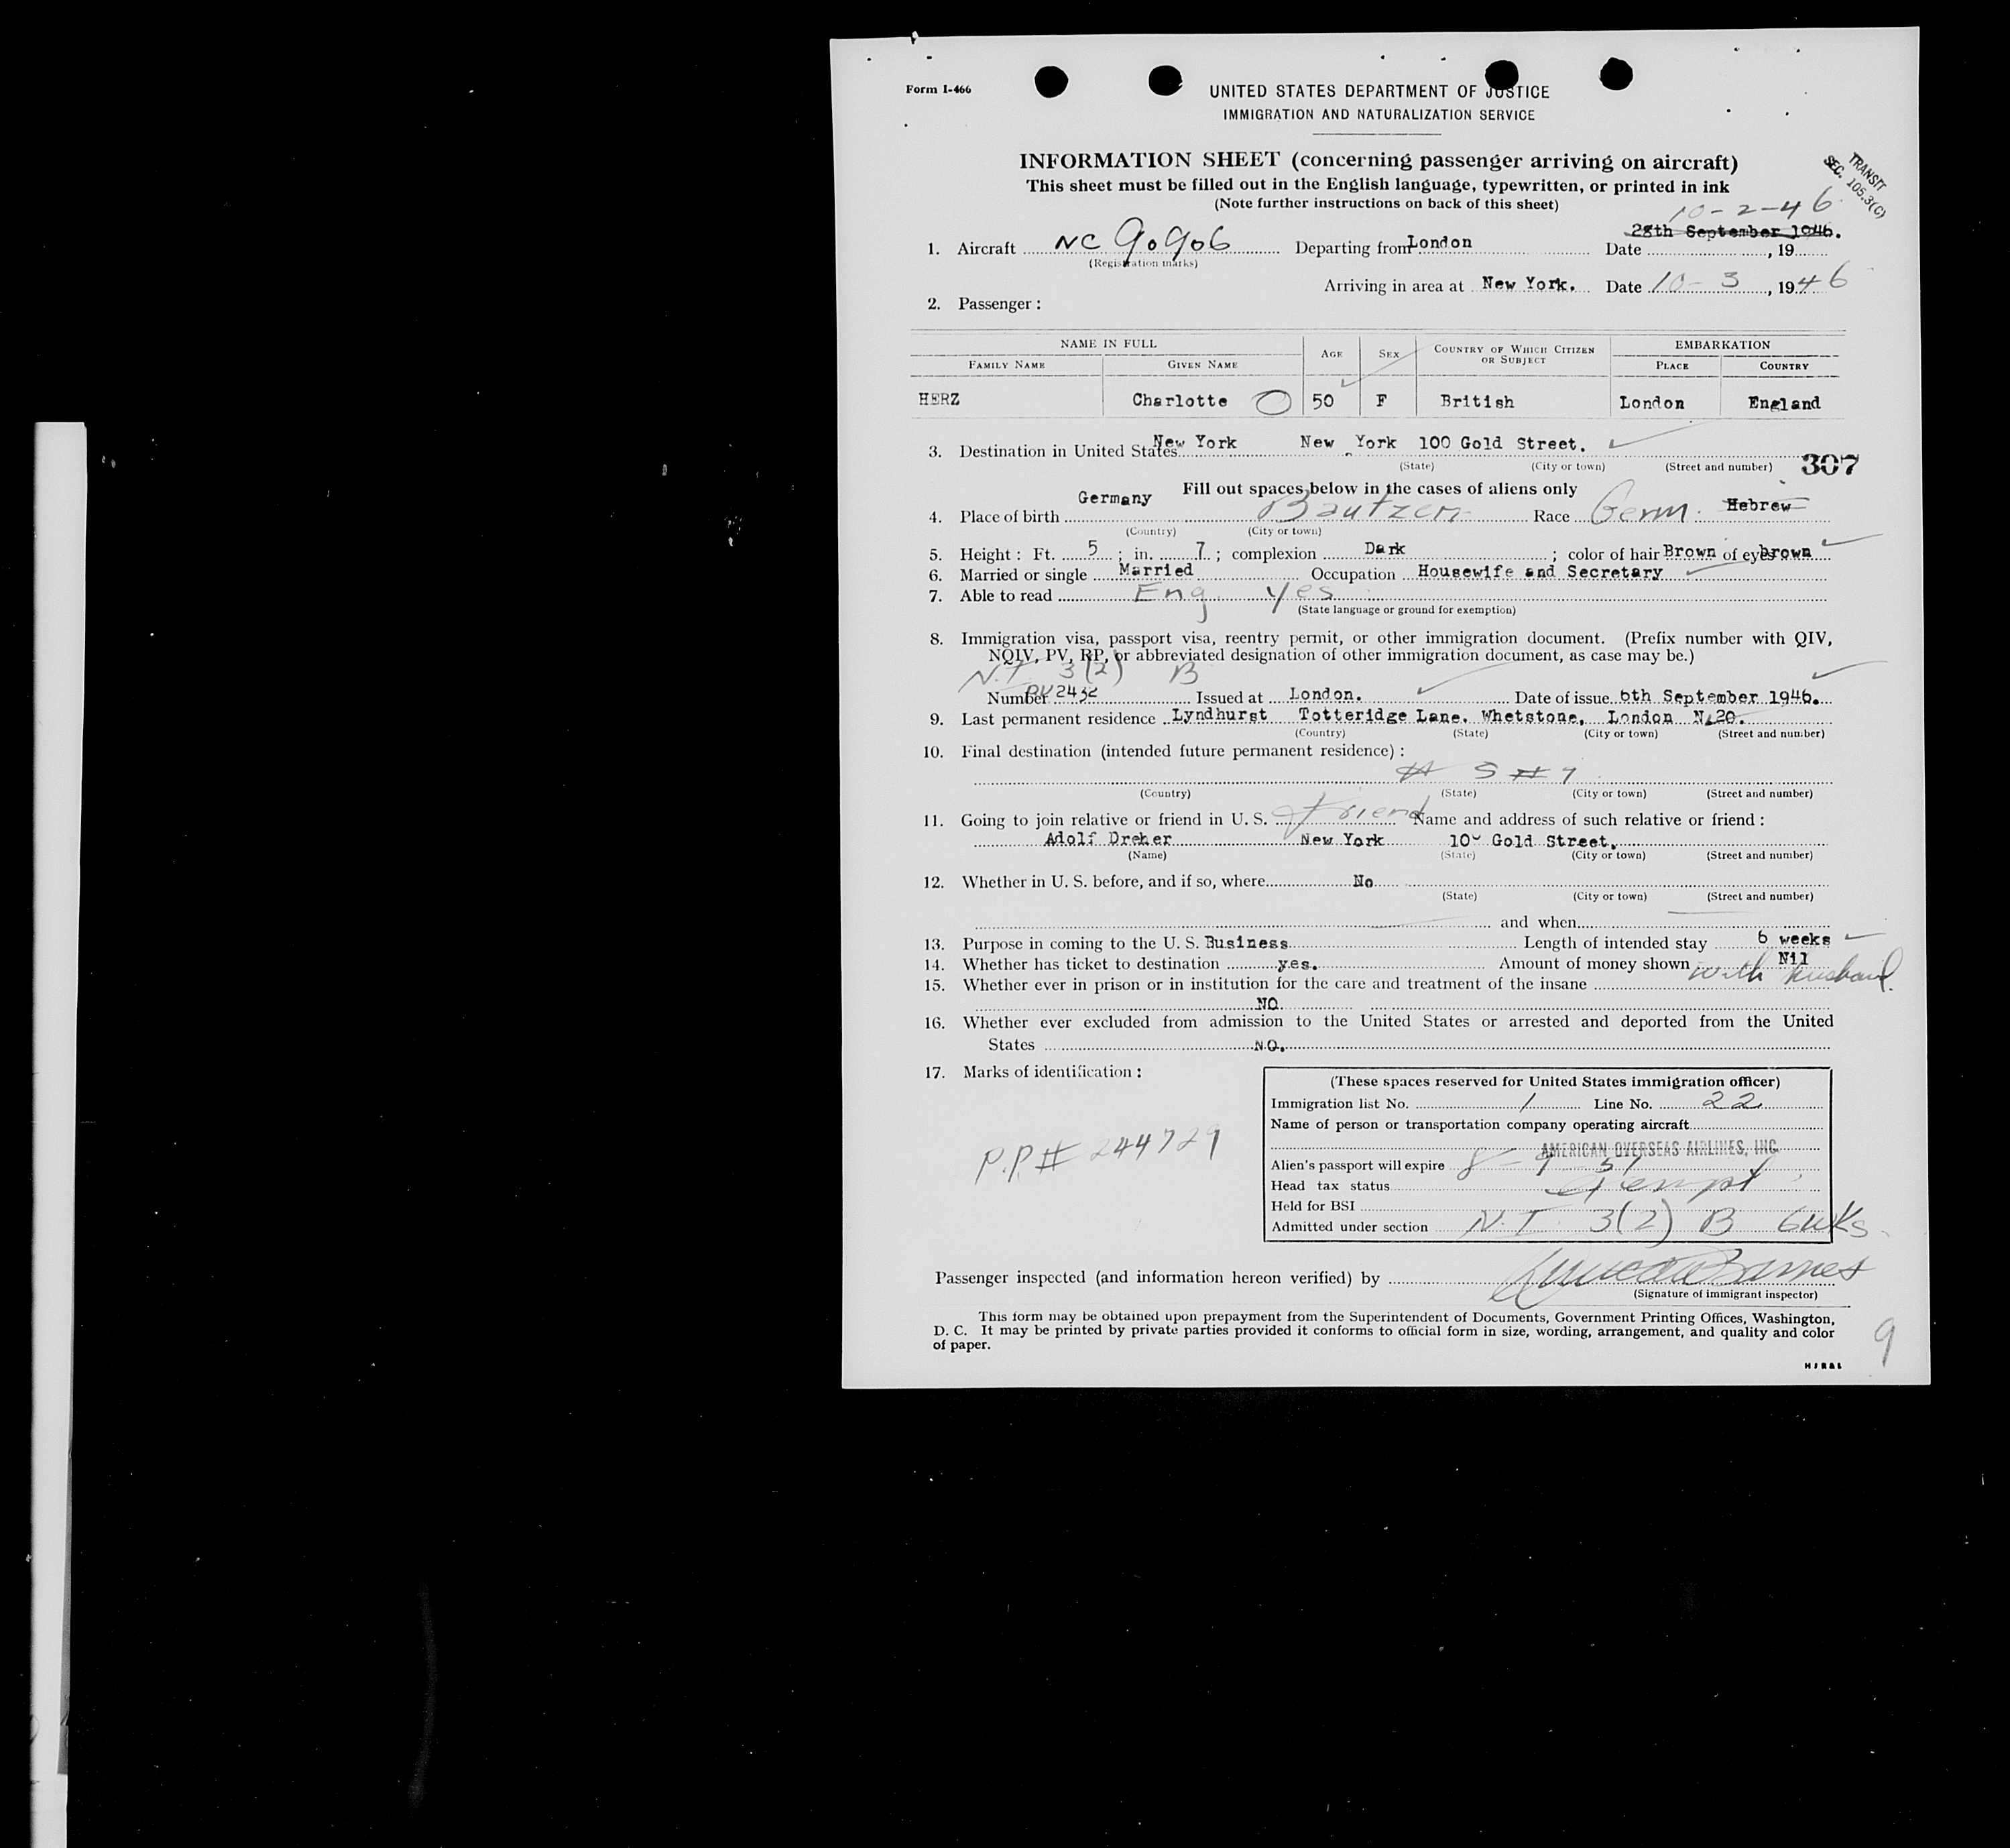 Form I-466
UNITED STATES DEPARTMENT OF JUSTICE
IMMIGRATION AND NATURALIZATION SERVICE
INFORMATION SHEET (concerning passenger arriving on aircraft)
This sheet must be filled out in the English language, typewritten, or printed in ink
(Note further instructions on back of this sheet)
TRANSIT
SEC. 105.3(C)
10-2-46
28th September 1946.
1. Aircraft NC 90906 Departing from London Date , 19
(Registration marks)
Arriving in area at New York. Date 10-3, 1946
2. Passenger:
NAME IN FULL AGE SEX COUNTRY OF WHICH CITIZEN OR SUBJECT EMBARKATION
FAMILY NAME GIVEN NAME PLACE COUNTRY
HERZ Charlotte 50 F British London England
3. Destination in United States New York New York 100 Gold Street.
(State) (City or town) (Street and number) 307
Fill out spaces below in the cases of aliens only
4. Place of birth Germany Bautzen Race Germ. Hebrew
(Country) (City or town)
5. Height: Ft. 5; in. 7; complexion Dark; color of hair Brown of eyes brown
6. Married or single Married Occupation Housewife and Secretary
7. Able to read Eng Yes
(State language or ground for exemption)
8. Immigration visa, passport visa, reentry permit, or other immigration document. (Prefix number with QIV,
NQIV, PV, RP, or abbreviated designation of other immigration document, as case may be.)
N.I. 3(2) B
Number PV 2432 Issued at London. Date of issue 6th September 1946.
9. Last permanent residence Lyndhurst Totteridge Lane, Whetstone, London N.20.
(Country) (State) (City or town) (Street and number)
10. Final destination (intended future permanent residence):
(Country) (State) (City or town) (Street and number)
11. Going to join relative or friend in U. S. friend Name and address of such relative or friend:
Adolf Dreher New York 100 Gold Street.
(Name) (State) (City or town) (Street and number)
12. Whether in U. S. before, and if so, where No
(State) (City or town) (Street and number)
and when
13. Purpose in coming to the U. S. Business Length of intended stay 6 weeks
14. Whether has ticket to destination yes. Amount of money shown Nil
with husband.
15. Whether ever in prison or in institution for the care and treatment of the insane
NO
16. Whether ever excluded from admission to the United States or arrested and deported from the United
States NO.
17. Marks of identification:
P.P.# 244729
(These spaces reserved for United States immigration officer)
Immigration list No. 1 Line No. 22
Name of person or transportation company operating aircraft
AMERICAN OVERSEAS AIRLINES, INC.
Alien's passport will expire 8-9-51
Head tax status exempt
Held for BSI
Admitted under section N.I. 3(2) B 6wks
Passenger inspected (and information hereon verified) by
(Signature of immigrant inspector)
This form may be obtained upon prepayment from the Superintendent of Documents, Government Printing Offices, Washington,
D. C. It may be printed by private parties provided it conforms to official form in size, wording, arrangement, and quality and color
of paper.
9